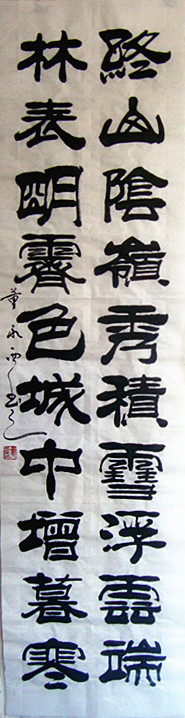 終山陰嶺秀積雪浮雲端
林表明霽色城中增暮寒
董永